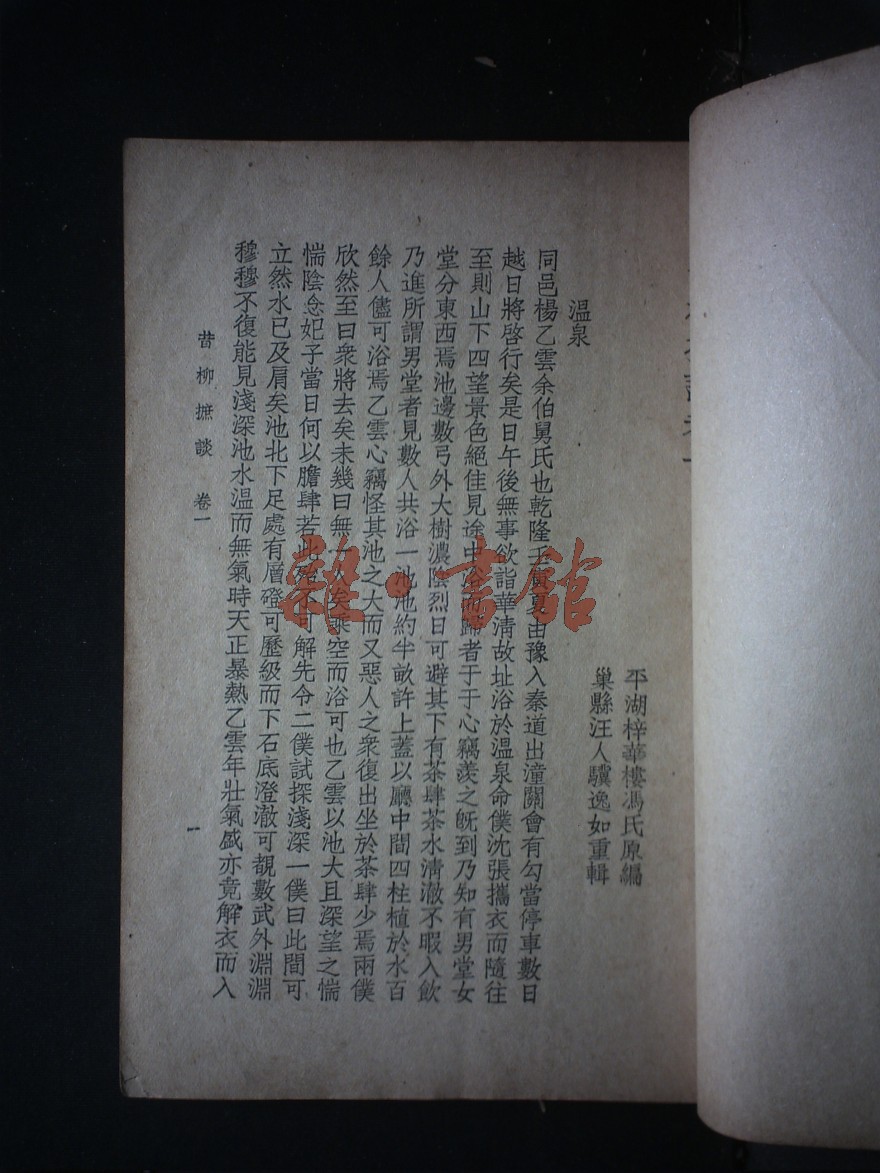 平湖梓華樓馮氏原編
巢縣汪人驥逸如重輯
溫泉
同邑楊乙雲余伯舅氏也乾隆壬寅夏由豫入秦道出潼關會有勾當停車數日
越日將啓行矣是日午後無事欲詣華清故址浴於溫泉命僕沈張攜衣而隨往
至則山下四望景色絕佳見途中浴而歸者于于心竊羨之旣到乃知有男堂女
堂分東西焉池邊數弓外大樹濃陰烈日可避其下有茶肆茶水清澈不暇入飲
乃進所謂男堂者見數人共浴一池池約半畝許上蓋以廳中間四柱植於水百
餘人儘可浴焉乙雲心竊怪其池之大而又惡人之衆復出坐於茶肆少焉兩僕
欣然至曰衆將去矣未幾曰無一人矣乘空而浴可也乙雲以池大且深望之惴
惴陰念妃子當日何以膽肆若此殆不可解先令二僕試探淺深一僕曰此間可
立然水已及肩矣池北下足處有層磴可歷級而下石底澄澈可覩數武外淵淵
穆穆不復能見淺深池水溫而無氣時天正暴熱乙雲年壯氣盛亦竟解衣而入
昔柳摭談 卷一
一
雜·書館